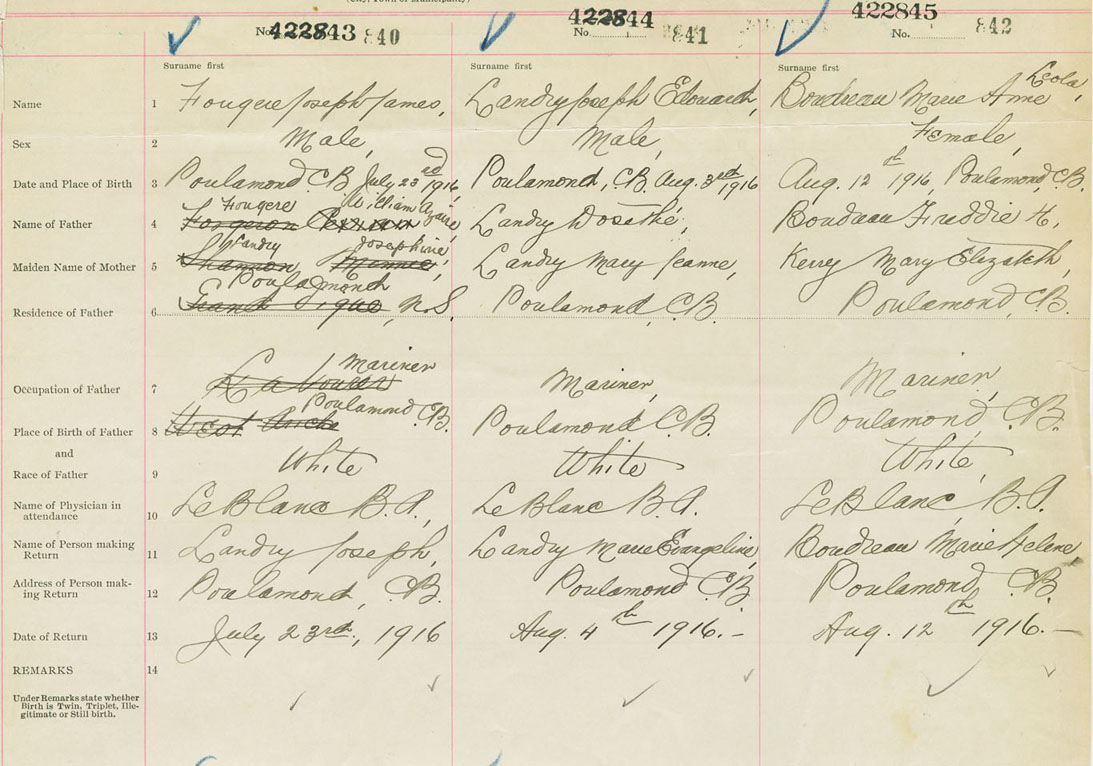 (City, Town or Municipality)
No. 422843 840
No. 422844 841
422845
No. 842
Surname first
Surname first
Surname first
Name 1 Fougere Joseph James, Landry Joseph Edouard, Boudreau Marie Anne Leola,
Sex 2 Male, Male, Female,
Date and Place of Birth 3 Poulamond CB July 23rd 1916 Poulamond, CB Aug. 3rd 1916 Aug. 12th 1916, Poulamond CB.
Fougere William
Name of Father 4 Forgeron Landry Dosithé, Boudreau Freddie H.,
Landry Josephine
Maiden Name of Mother 5 Shannon Minnie, Landry Mary Jeanne, Kerry Mary Elizabeth,
Poulamond
Residence of Father 6 Grand Digue, N.S. Poulamond, C.B. Poulamond, C.B.
Mariner
Occupation of Father 7 Labourer Mariner, Mariner,
Poulamond C.B.
Place of Birth of Father 8 West Poulamond C.B. Poulamond C.B.
and
Race of Father 9 White White White,
Name of Physician in
attendance 10 LeBlanc B.A., LeBlanc B.A. LeBlanc B.A.
Name of Person making
Return 11 Landry Joseph, Landry Marie Evangeline, Boudreau Marie Helene,
Address of Person mak-
ing Return 12 Poulamond, C.B. Poulamond C.B. Poulamond, C.B.
Date of Return 13 July 23rd, 1916 Aug. 4th 1916.- Aug. 12th 1916.-
REMARKS 14
Under Remarks state whether
Birth is Twin, Triplet, Ille-
gitimate or Still birth.